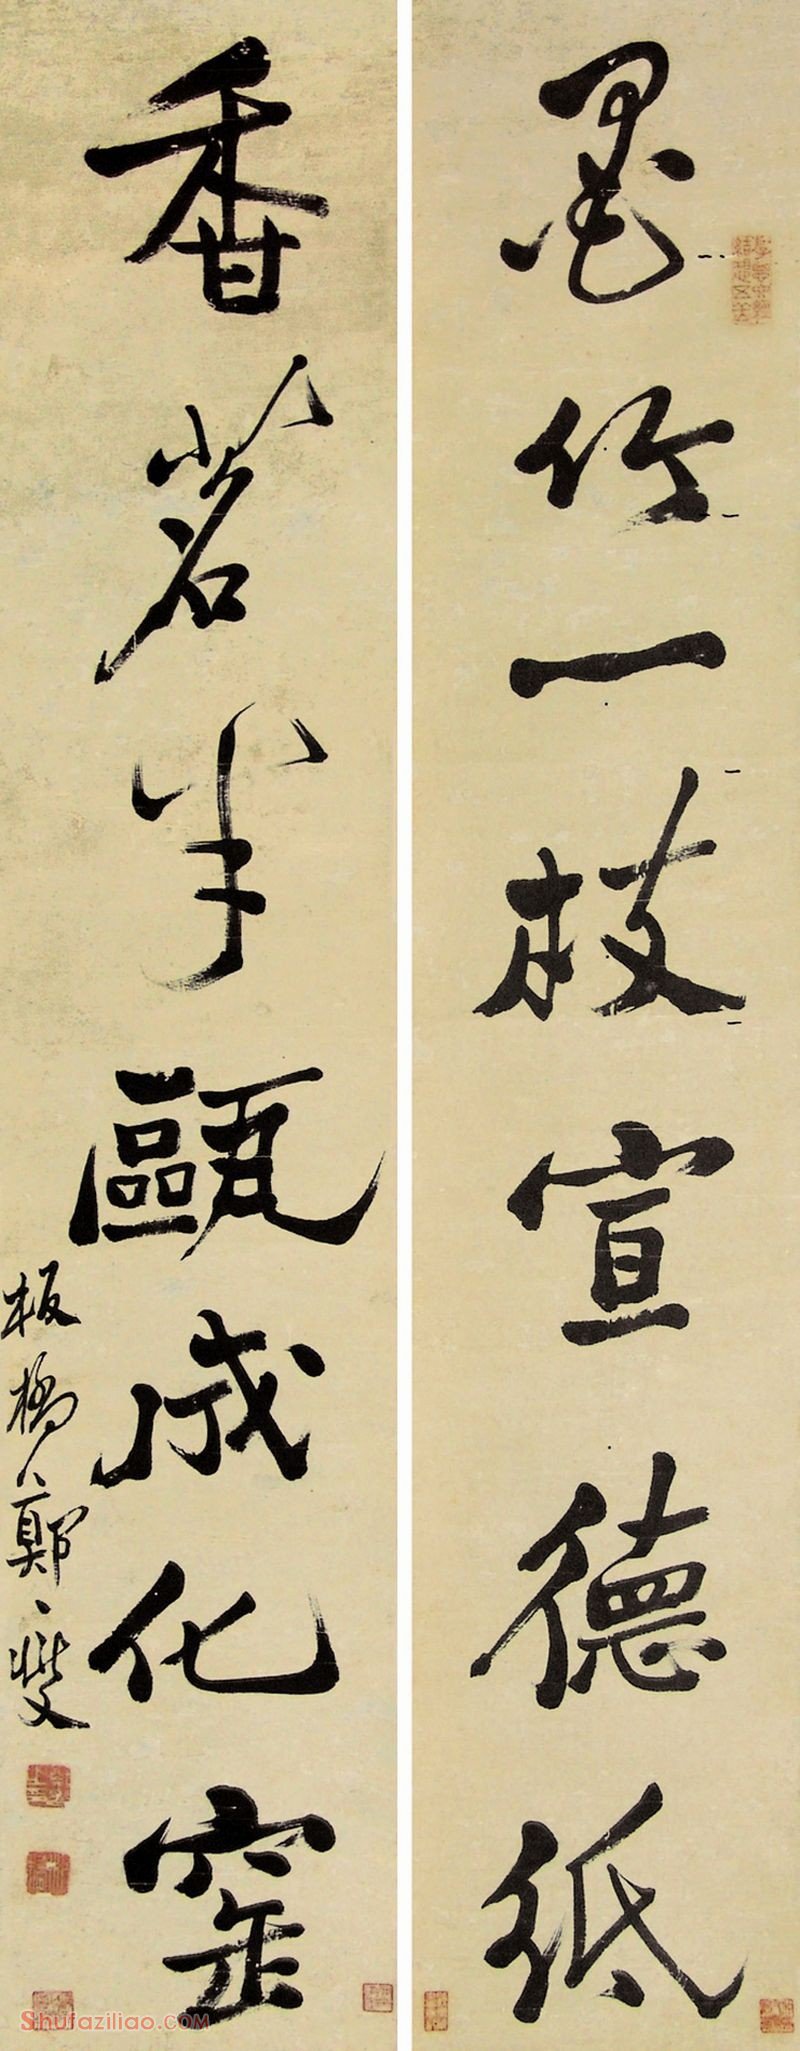 墨竹一枝宣德纸
香茗半甌成化窑
板橋鄭燮
Shufaziliao.COM